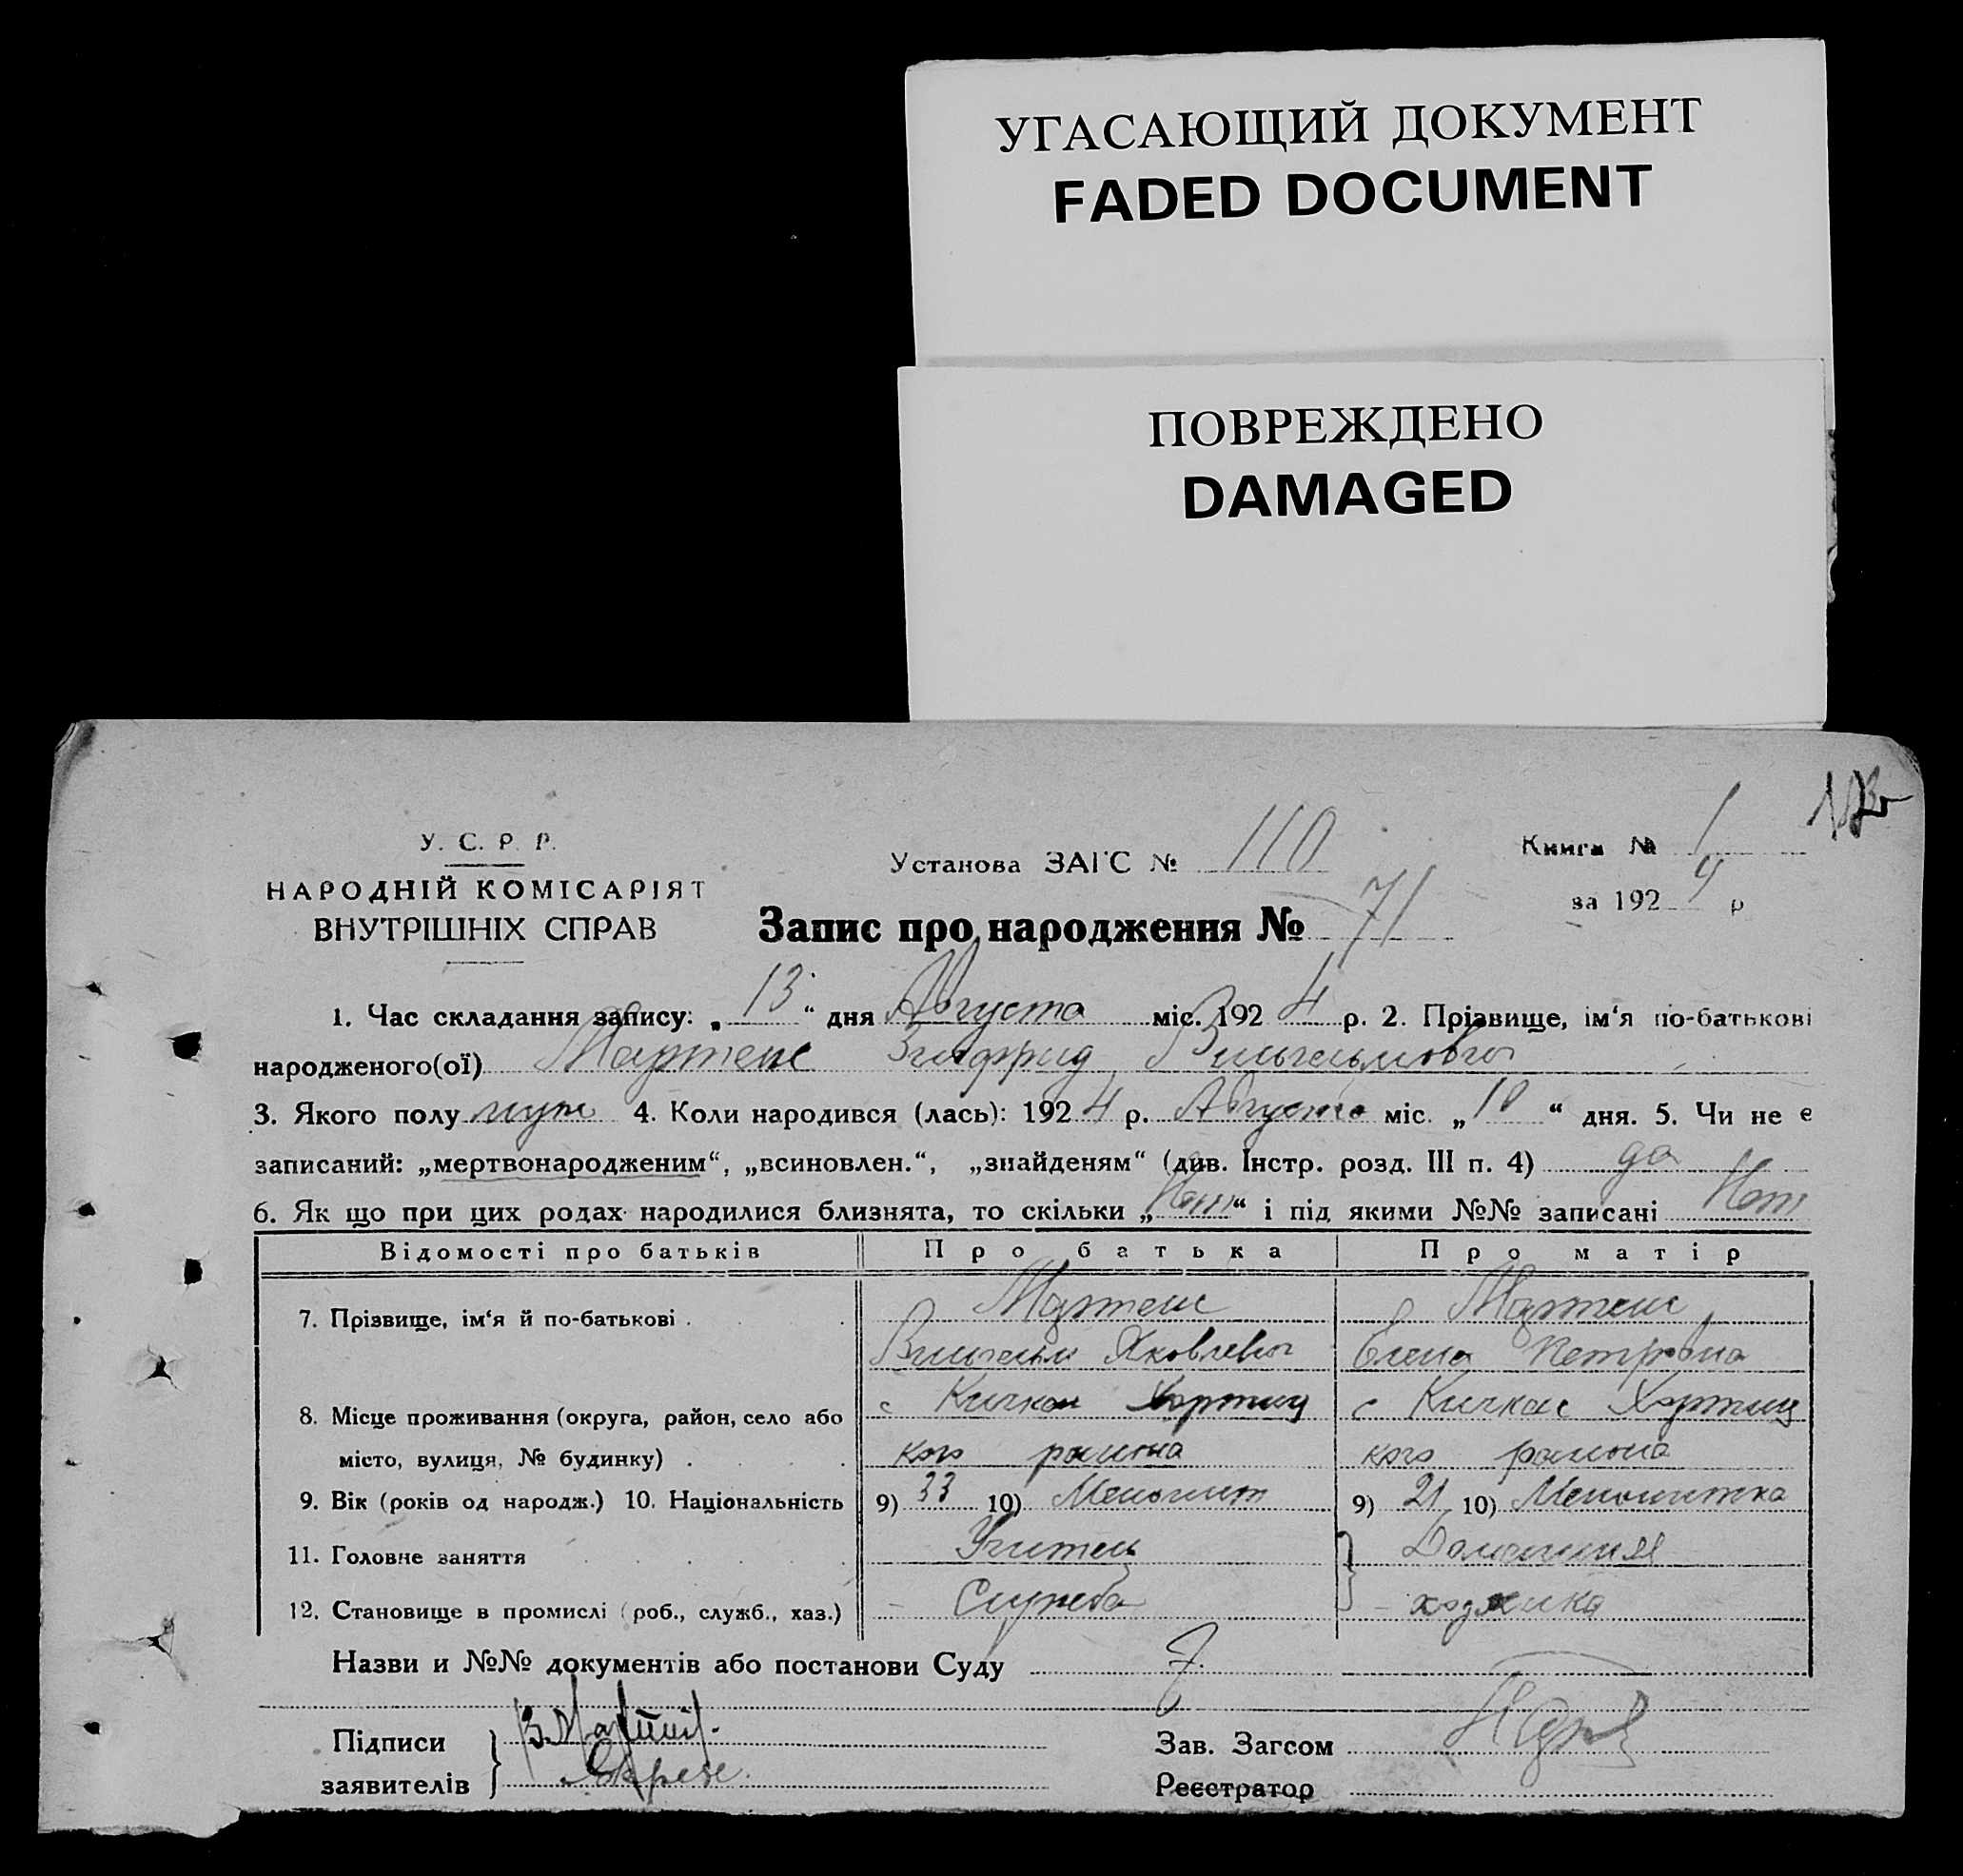 УГАСАЮЩИЙ ДОКУМЕНТ
FADED DOCUMENT
ПОВРЕЖДЕНО
DAMAGED
У. С. Р. Р.
НАРОДНІЙ КОМІСАРІЯТ
ВНУТРІШНІХ СПРАВ
Установа ЗАГС № 110
Книга № 1
за 1924 р
Запис про народження № 71
1. Час складання запису: „13“ дня Августа міс. 1924 р. 2. Прізвище, ім‘я по-батькові
народженого(ої) Мартенс Зигфрид Вильгельмович
3. Якого полу муж 4. Коли народився (лась): 1924 р. Августа міс. „10“ дня. 5. Чи не є
записаний: „мертвонародженим“, „всиновлен.“, „знайденям“ (див. Інстр. розд. III п. 4) да
6. Як що при цих родах народилися близнята, то скільки „Нет“ і під якими №№ записані Нет
Відомості про батьків Про батька Про матір
7. Прізвище, ім‘я й по-батькові Мартенс Мартенс
Вильгельм Яковлевич Елена Петровна
8. Місце проживання (округа, район, село або с Кичкас Хортиц с Кичкас Хортиц
місто, вулиця, № будинку) кого района кого района
9. Вік (років од народж.) 10. Національність 9) 33 10) Менонит 9) 21 10) Менонитка
11. Головне заняття Учитель Домашняя
12. Становище в промислі (роб., служб., хаз.) Служба
Назви и №№ документів або постанови Суду
Підписи
заявителів
Зав. Загсом
Реєстратор